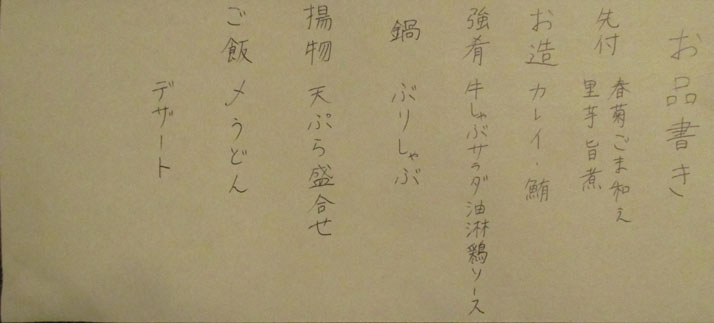 お品書き
先付 春菊ごま和え
里芋旨煮
お造 カレイ・鮪
強肴 牛しゃぶサラダ 油淋鶏ソース
鍋 ぶりしゃぶ
揚物 天ぷら盛合せ
ご飯 〆うどん
デザート